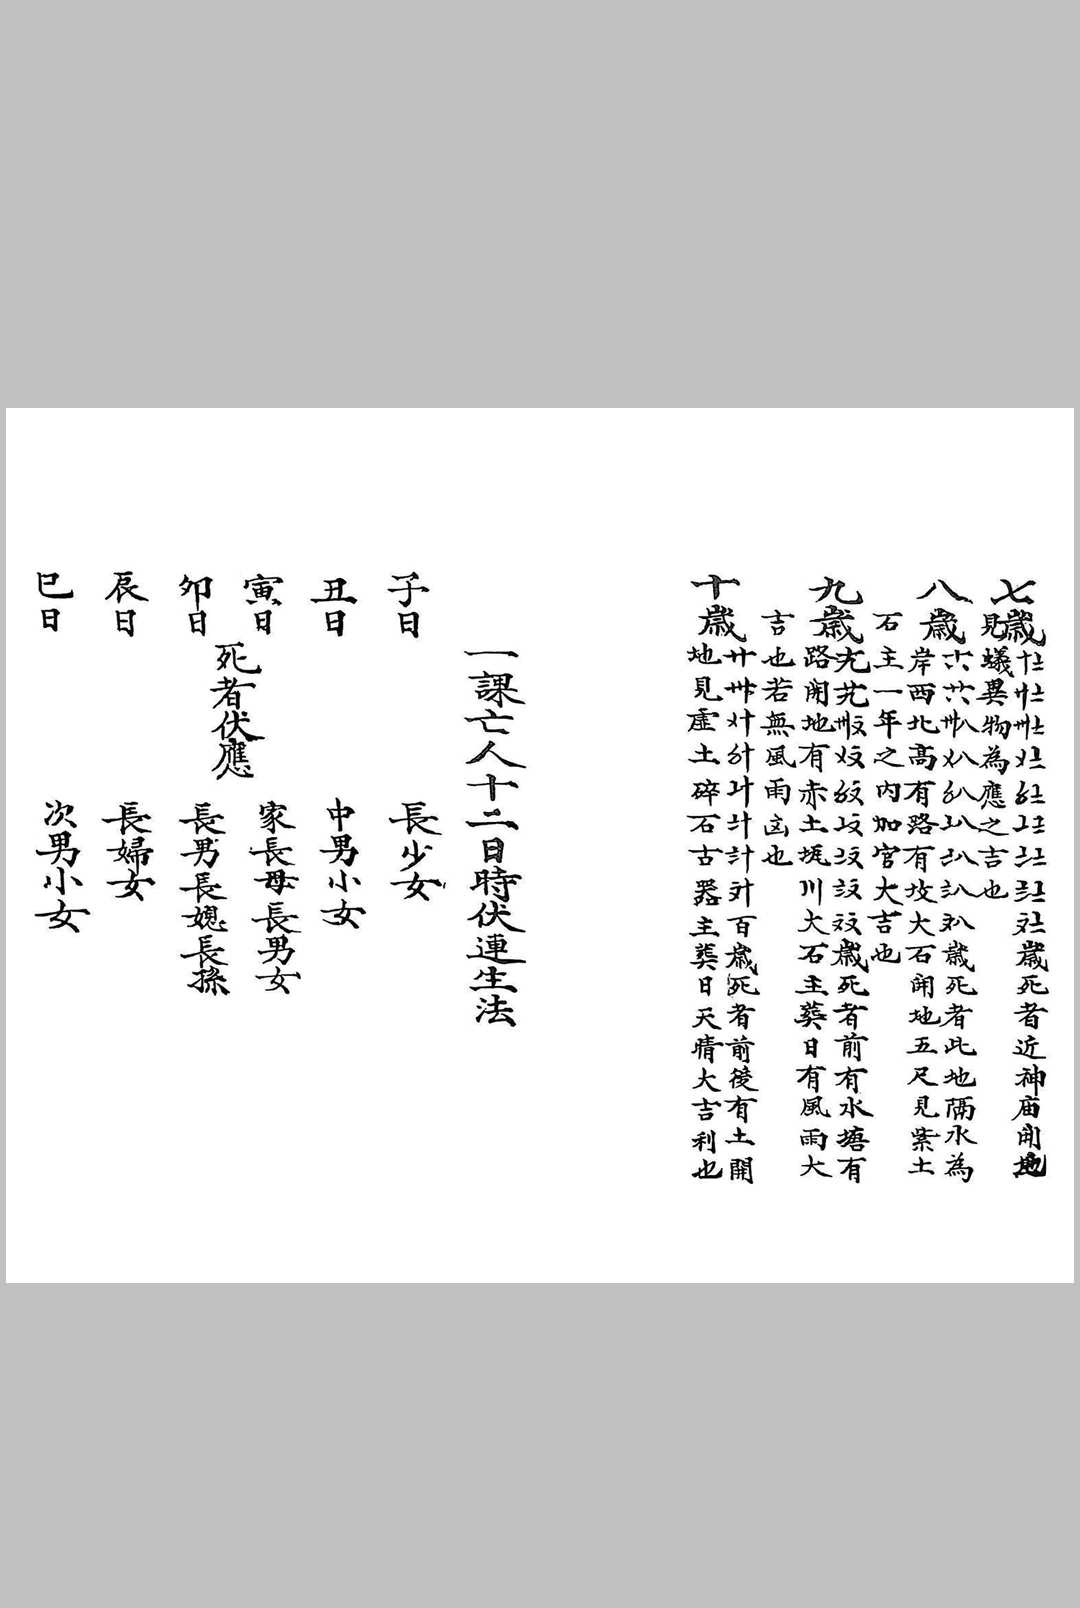 七歲
歲死者近神庙開地
見蟻異物為應之吉也
八歲
歲死者此地隔水為
岸西北高有路有坟大石開地五尺見紫土
石主一年之内加官大吉也
九歲
歲死者前有水塘有
路開地有赤土坭川大石主葬日有風雨大
吉也若無風雨凶也
十歲
百歲死者前後有土開
地見虛土碎石古器主葬日天晴大吉利也
一課亡人十二日時伏連生法
子日 長少女
丑日 中男小女
寅日 家長母長男女
死者伏應
卯日 長男長媳長孫
辰日 長婦女
巳日 次男小女